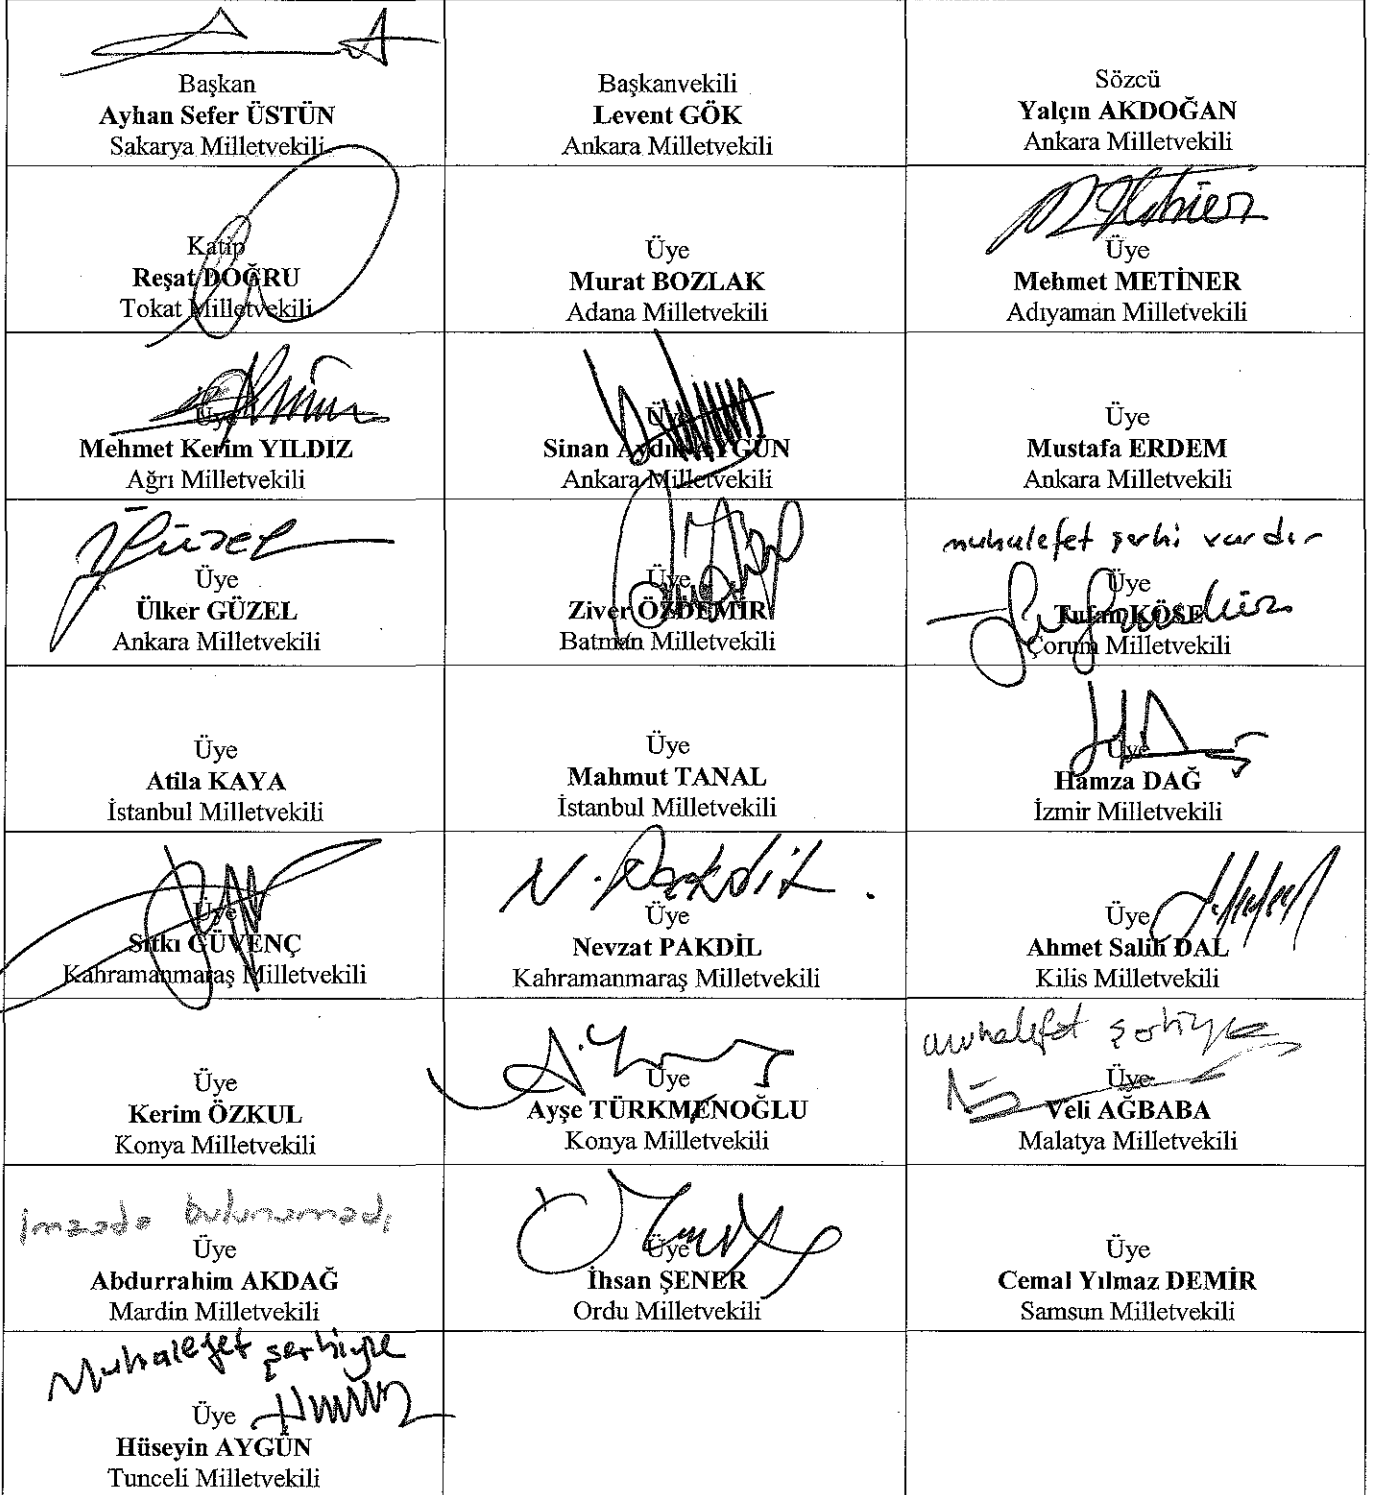 Başkan
Ayhan Sefer ÜSTÜN
Sakarya Milletvekili
Başkanvekili
Levent GÖK
Ankara Milletvekili
Sözcü
Yalçın AKDOĞAN
Ankara Milletvekili
Katip
Reşat DOĞRU
Tokat Milletvekili
Üye
Murat BOZLAK
Adana Milletvekili
Üye
Mehmet METİNER
Adıyaman Milletvekili
Üye
Mehmet Kerim YILDIZ
Ağrı Milletvekili
Üye
Sinan Aydın AYGÜN
Ankara Milletvekili
Üye
Mustafa ERDEM
Ankara Milletvekili
Üye
Ülker GÜZEL
Ankara Milletvekili
Üye
Ziver ÖZDEMİR
Batman Milletvekili
muhalefet şerhi vardır
Üye
Tufan KÖSE
Çorum Milletvekili
Üye
Atila KAYA
İstanbul Milletvekili
Üye
Mahmut TANAL
İstanbul Milletvekili
Üye
Hamza DAĞ
İzmir Milletvekili
Üye
Sıtkı GÜVENÇ
Kahramanmaraş Milletvekili
N. Pakdil.
Üye
Nevzat PAKDİL
Kahramanmaraş Milletvekili
Üye
Ahmet Salih DAL
Kilis Milletvekili
Üye
Kerim ÖZKUL
Konya Milletvekili
Üye
Ayşe TÜRKMENOĞLU
Konya Milletvekili
muhalefet şerhiyle
Üye
Veli AĞBABA
Malatya Milletvekili
imzada bulunamadı
Üye
Abdurrahim AKDAĞ
Mardin Milletvekili
Üye
İhsan ŞENER
Ordu Milletvekili
Üye
Cemal Yılmaz DEMİR
Samsun Milletvekili
Muhalefet şerhiyle
Üye
Hüseyin AYGÜN
Tunceli Milletvekili